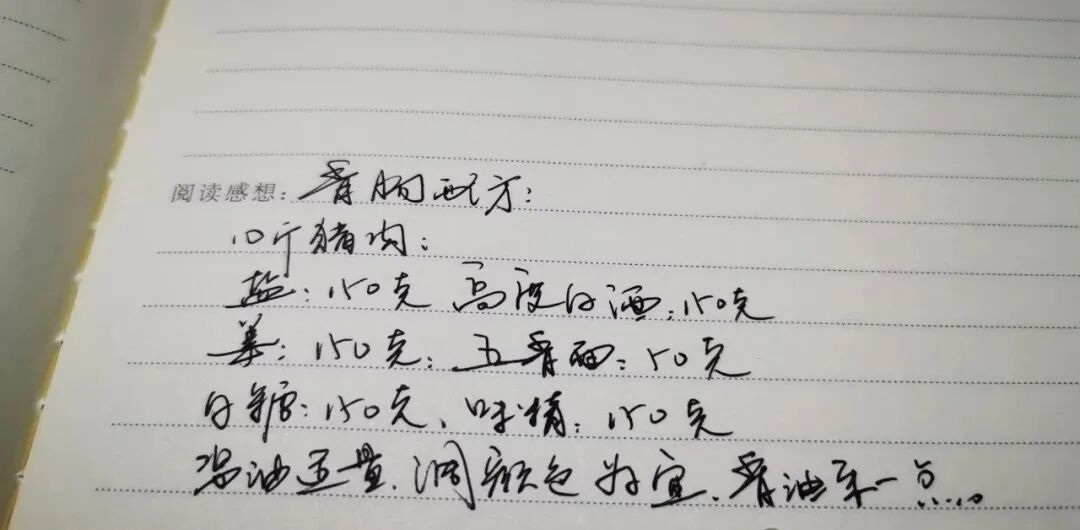 阅读感想：香肠配方：
10斤猪肉：
盐：150克 高度白酒：150克
姜：150克；五香面：50克
白糖：150克、味精：150克
酱油适量，调颜色为宜，香油来一点……